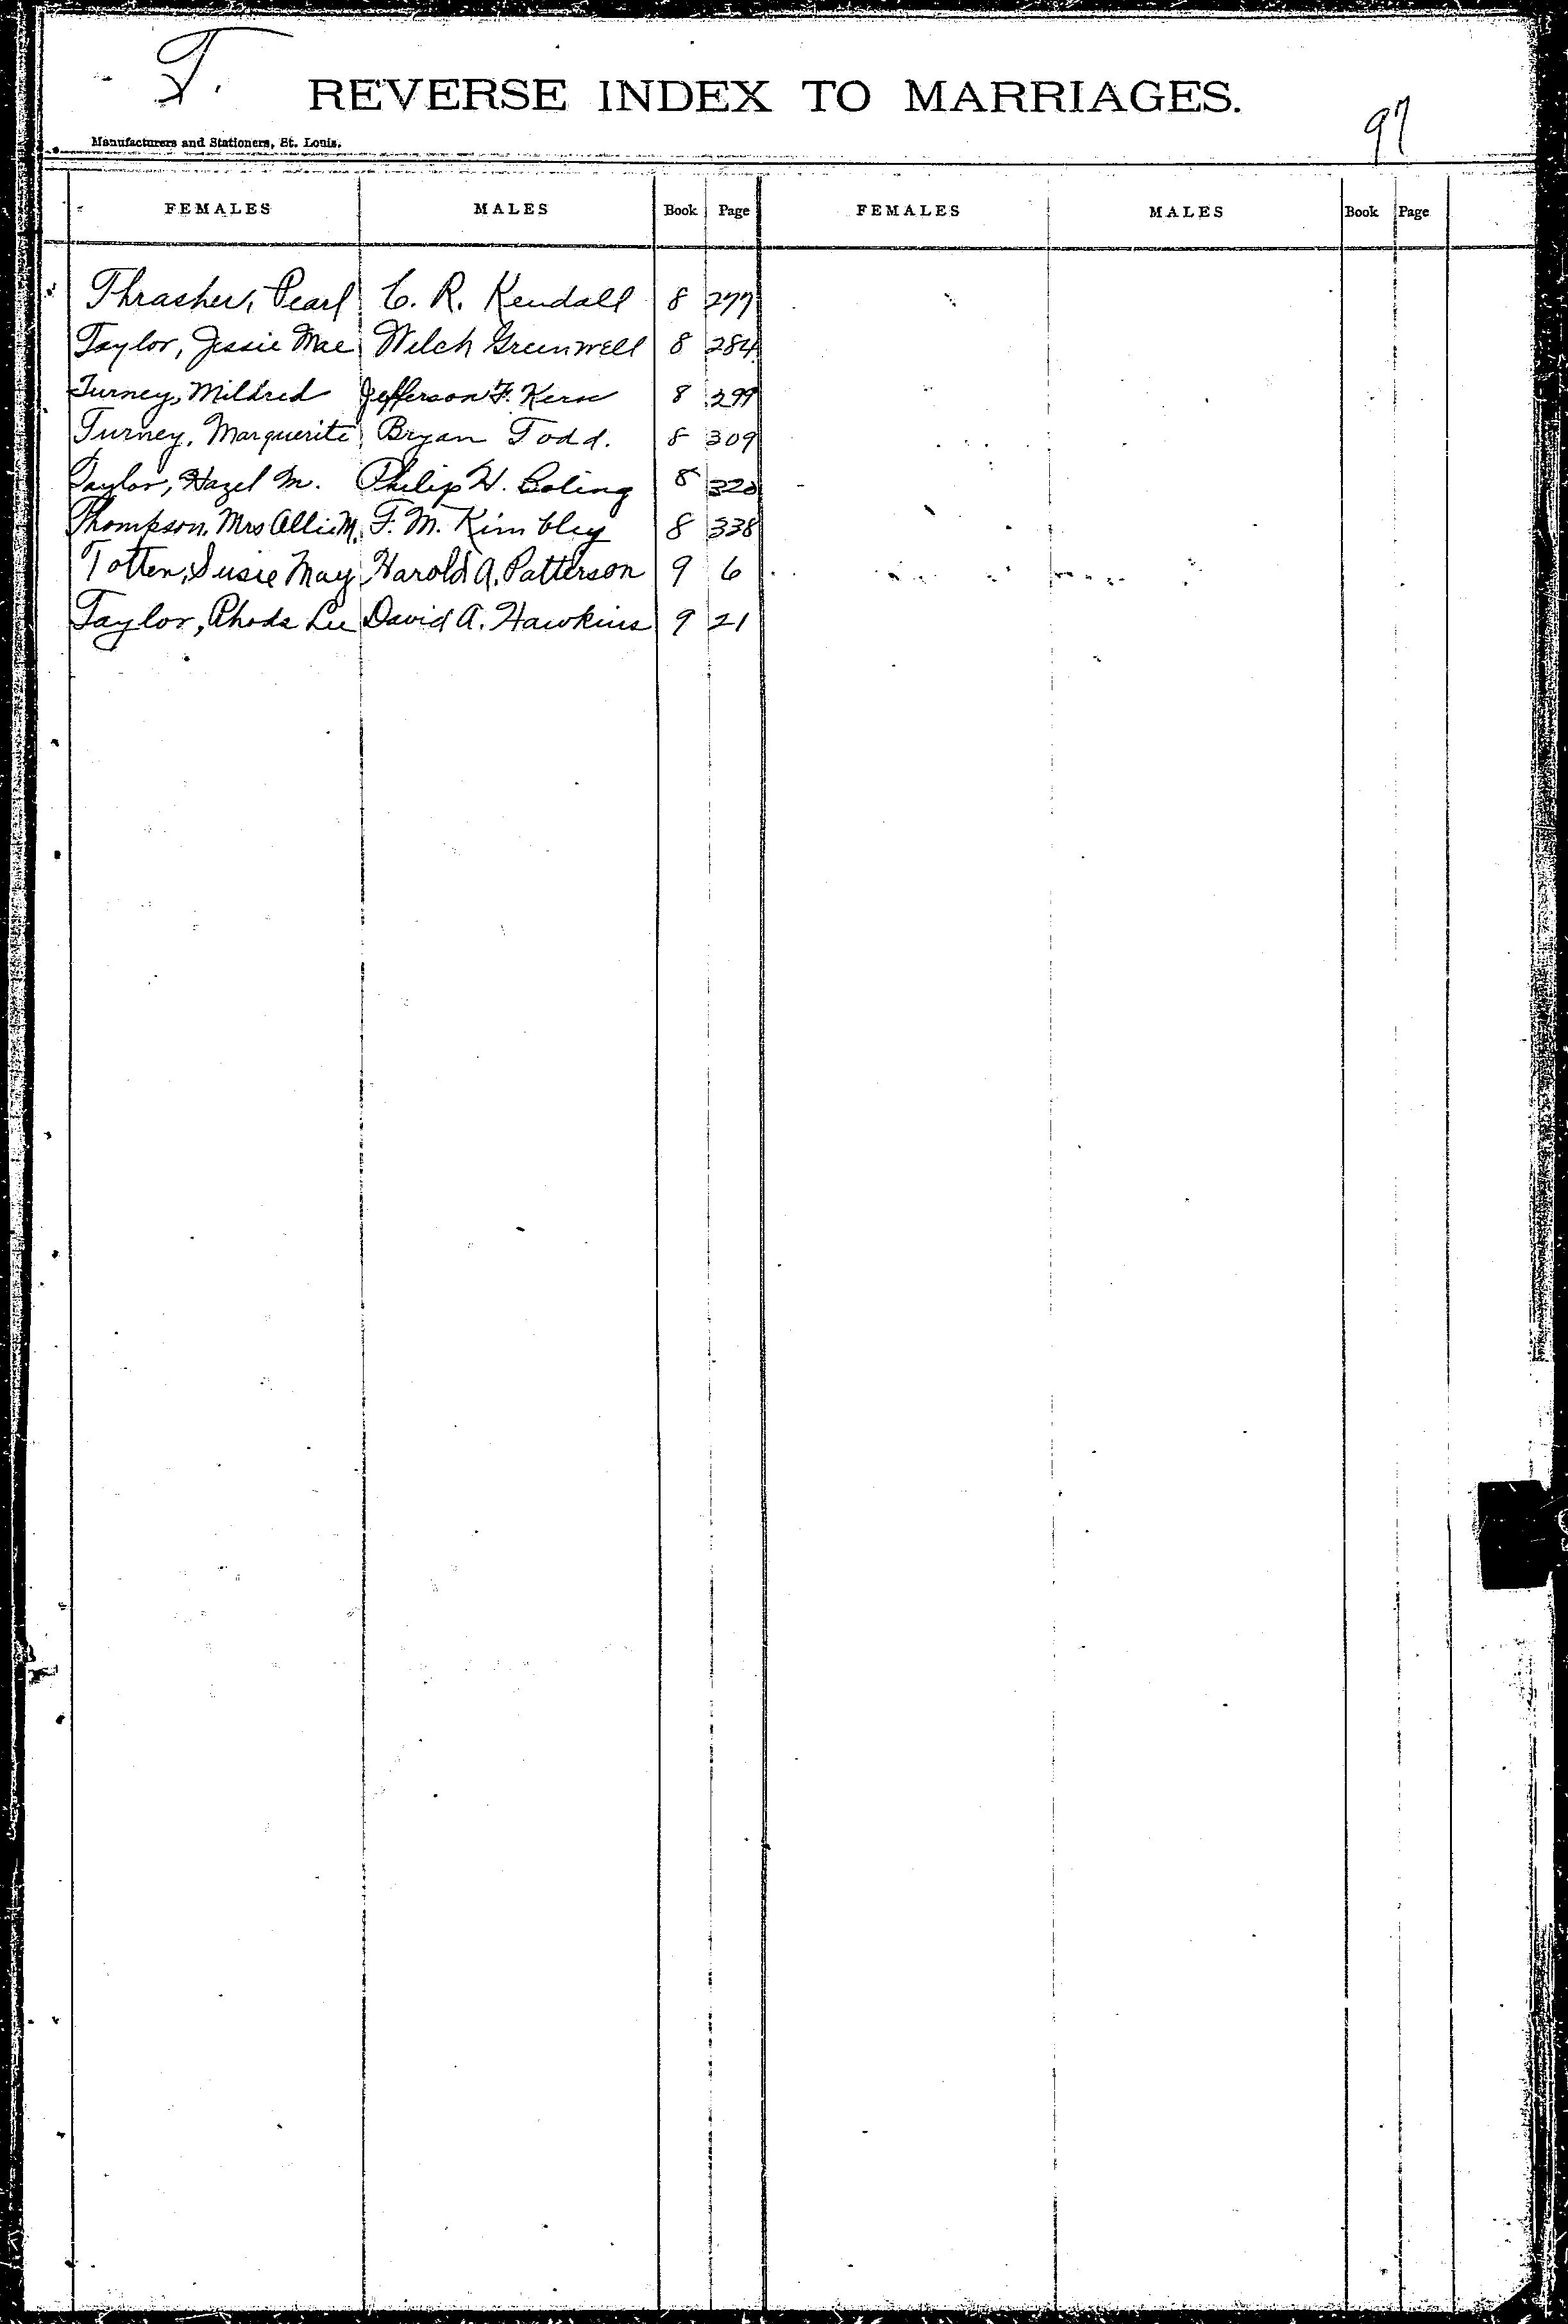 T.
REVERSE INDEX TO MARRIAGES.
97
Manufacturers and Stationers, St. Louis.
FEMALES MALES Book Page FEMALES MALES Book Page
Thrasher, Pearl C. R. Kendall 8 277
Taylor, Jessie Mae Welch Greenwell 8 284
Turney, Mildred Jefferson F. Kern 8 299
Turney, Marguerite Bryan Todd. 8 309
Taylor, Hazel M. Philip H. Boling 8 320
Thompson, Mrs Allie M. F. M. Kimbley 8 338
Totten, Susie May Harold A. Patterson 9 6
Taylor, Rhoda Lee David A. Hawkins 9 21